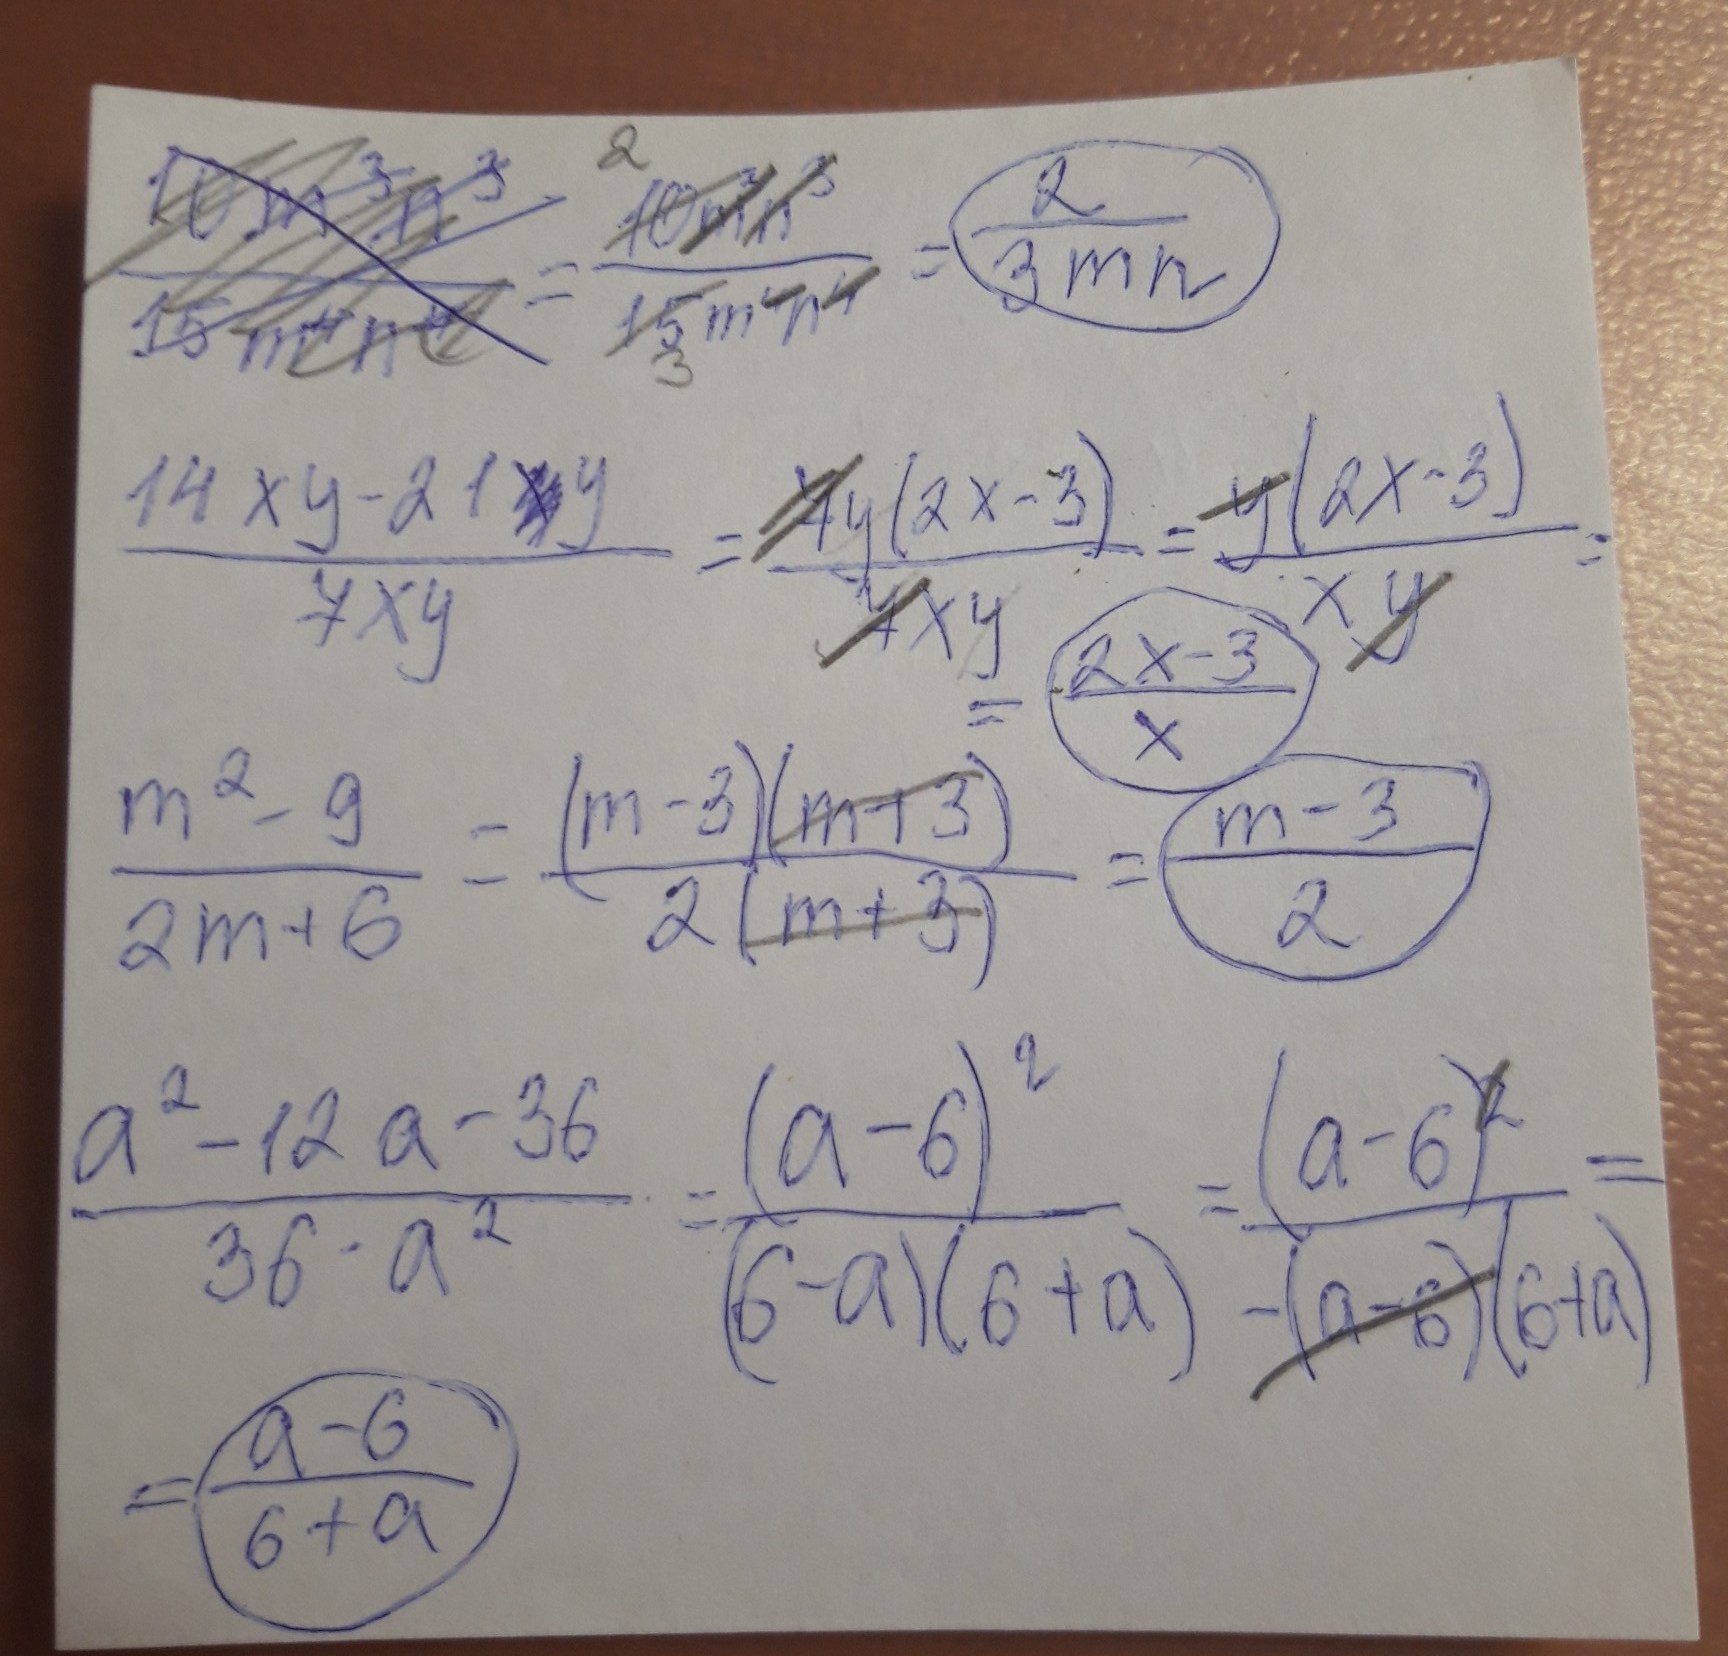 10m³n³/15m⁴n⁴ = 2 10m³n³/15m⁴n⁴ 3 = 2/3mn
14xy-21y/7xy = 7y(2x-3)/7xy = y(2x-3)/xy =
= 2x-3/x
m²-9/2m+6 = (m-3)(m+3)/2(m+3) = m-3/2
a²-12a-36/36-a² = (a-6)²/(6-a)(6+a) = (a-6)²/-(a-6)(6+a) =
= a-6/6+a